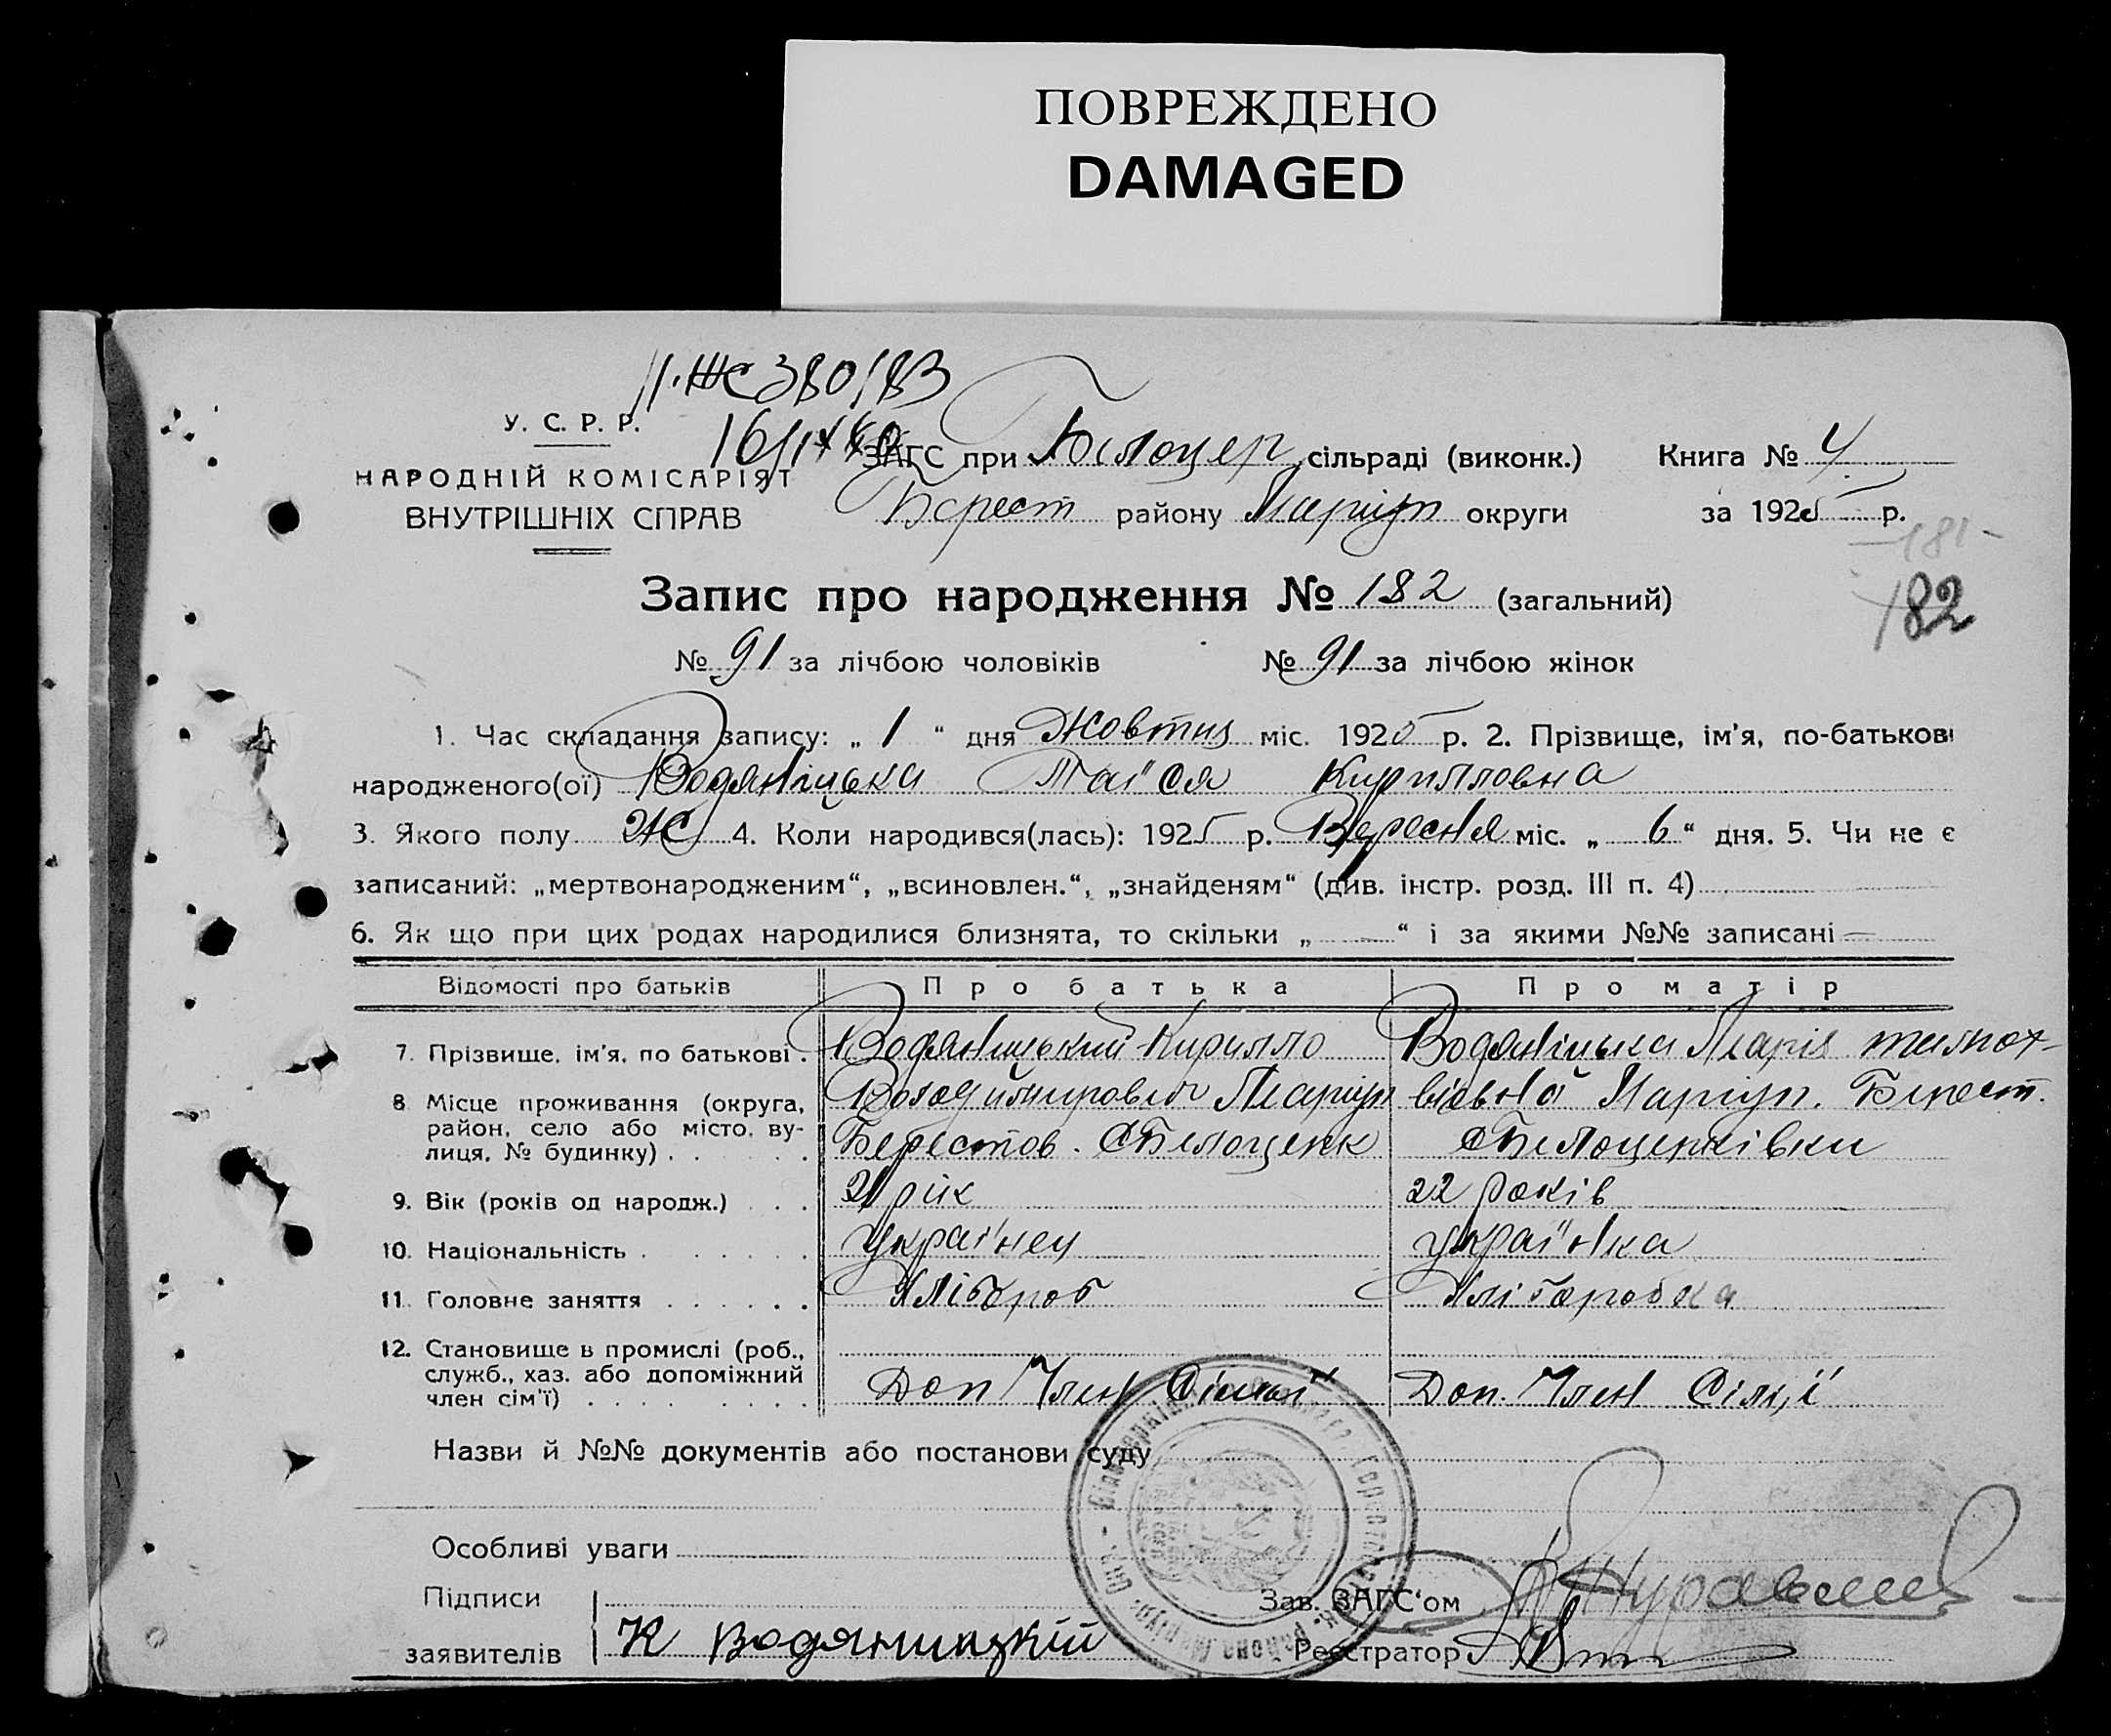 ПОВРЕЖДЕНО
DAMAGED
380/83
У. С. Р. Р.
НАРОДНІЙ КОМІСАРІЯТ
ВНУТРІШНІХ СПРАВ
ЗАГС при Білоцер сільраді (виконк.) Книга № 4
Берест району Маріуп округи за 1925 р.
-181-
Запис про народження № 182 (загальний)
182
№ 91 за лічбою чоловіків № 91 за лічбою жінок
1. Час складання запису: „ 1 “ дня Жовтня міс. 1925 р. 2. Прізвище, ім'я, по-батькові
народженого(ої) Водяніцька Таїся Кирилловна
3. Якого полу Ж 4. Коли народився(лась): 1925 р. Вересня міс. „ 6 “ дня. 5. Чи не є
записаний: „мертвонародженим“, „всиновлен.“, „знайденям“ (див. інстр. розд. III п. 4)
6. Як що при цих родах народилися близнята, то скільки „ — “ і за якими №№ записані —
Відомості про батьків Про батька Про матір
7. Прізвище, ім'я, по батькові . Водяницький Кирилло Водяніцька Марія
8. Місце проживання (округа, Маріуп Маріуп. Берест.
район, село або місто, ву- Берестов.
лиця, № будинку) . . . . . . Білоцерківки
9. Вік (років од народж.) . . . 21 рік 22 років
10. Національність . . . . . . українец українка
11. Головне заняття . . . . . . Хлібороб Хліборобка
12. Становище в промислі (роб.,
служб., хаз. або допоміжний Доп Член Сімьї Доп. Член Сім'ї
член сім'ї) . . . . . . . . .
Назви й №№ документів або постанови суду
Особливі уваги
Підписи Зав. ЗАГС'ом Журавлев
заявителів К Водяницкій Реєстратор